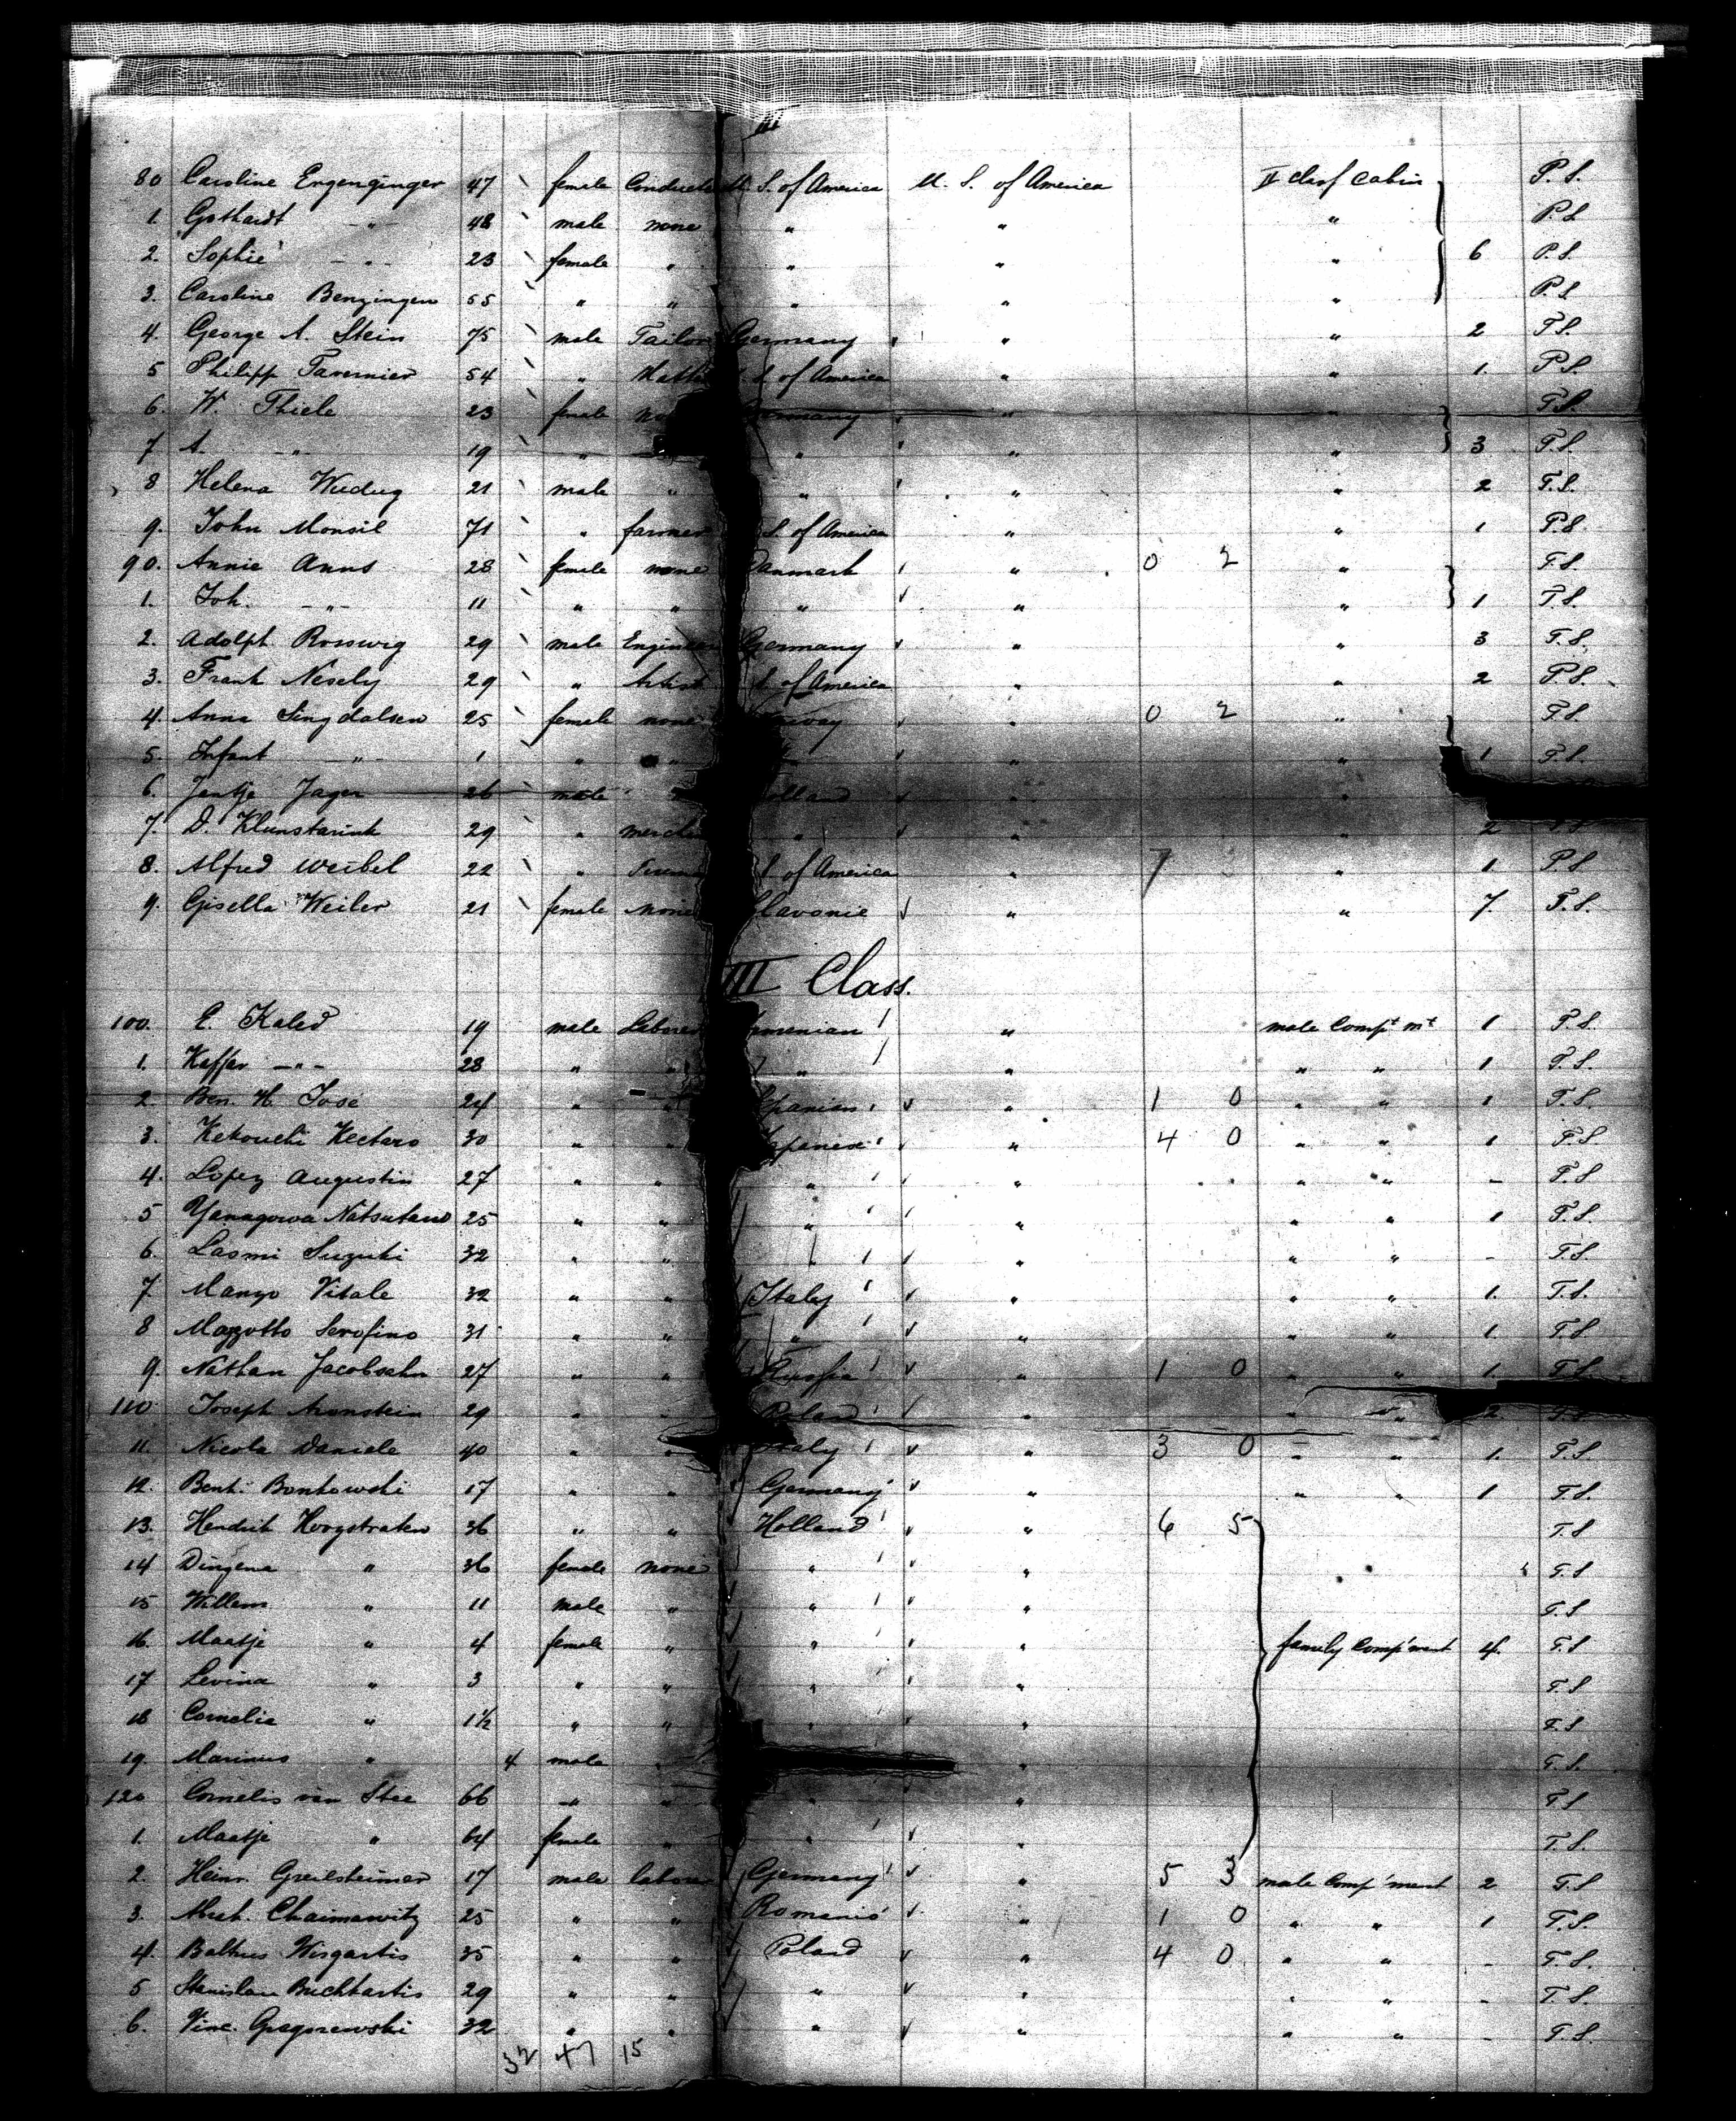 80 Caroline Engenginger 47 female S. of America U. S. of America II class Cabin P. S.
1. Gothardt -"- 48 male none " " " P.S.
2. Sophie -"- 23 female " " " " 6 P.S.
3. Caroline Benzinger 55 " " " " " P.S.
4. George A. Stein 75 male Tailor Germany " " 2 T.S.
5 Philipp Tavernier 54 " S. of America " " 1. P.S.
6. W. Thiele 23 female Germany " " T.S.
7 A. -"- 19 " " " " 3 T.S.
8 Helena 21 male " " " " 2 T.S.
9. John Monsil 71 " farmer S. of America " " 1 P.S.
90. Annie Anns 28 female none Danmark " 0 2 " T.S.
1. Joh. -"- 11 " " " " " 1 T.S.
2. Adolph Rosswig 29 male Engineer Germany " " 3 T.S.
3. Frank Nesely 29 " Artist S. of America " " 2 P.S.
4. Anna Singdalsen 25 female none " 0 2 " T.S.
5. Infant -"- 1 " " " " 1 T.S.
6. Jentje Jager 26 male " Holland " "
7. D. Klunstarink 29 " " " 2 T.S.
8. Alfred Weibel 22 " S. of America " 7 " 1 P.S.
9. Gisella Weiler 21 female none Slavonie " " 7. T.S.
III Class.
100. E. Kaled 19 male Laborer Armenian " male Compt mt 1 T.S.
1. Keffer -"- 28 " " " " " 1 T.S.
2. Ben. H. José 24 " " Spanien " 1 0 " " 1 T.S.
3. Kekouchi Kectaro 30 " " Japanese " 4 0 " " 1 T.S
4. Lopez Augustin 27 " " " " " " - T.S
5 Yanagowa Natsutaro 25 " " " " " " 1 T.S.
6. Lasmi Suzuki 32 " " " " " - T.S.
7 Manzo Vitale 32 " " Italy " " " 1. T.S.
8 Mazzotto Serofino 31 " " " " " " 1. T.S
9. Nathan Jacobsohn 27 " " Russia " 1 0 " " 1. T.S
110. Joseph Aronstein 29 " " Poland " " " 2 T.S
11. Nicola Daniele 40 " " Italy " 3 0 " " 1. T.S.
12. Bent. Bonkowski 17 " " Germany " " " 1 T.S.
13. Hendrik Hoogstraten 36 " " Holland " 6 5 T.S
14 Dingena " 36 female none " " T.S
15 Willem " 11 male " " " T.S
16. Maatje " 4 female " " " family Comp'ment 4. T.S
17 Levina " 3 " " " " T.S
18 Cornelia " 1½ " " " " T.S
19. Marinus " 4 male " " T.S.
120 Cornelis van Stee 66 -"- " " " T.S
1. Maatje " 64 female " " " T.S.
2. Heinr. Greilsheimer 17 male laborer Germany " 5 3 male Comp'ment 2 T.S
3. Chaimawitz 25 " " Romania " 1 0 " " 1 T.S.
4. Baltrus Wisgartis 35 " " Poland " 4 0 " " - T.S.
5 Stanislaw Buchtartis 29 " " " " " " - T.S.
6. Vinc. Gregorewski 32 " " " " " " - T.S.
32 47 15